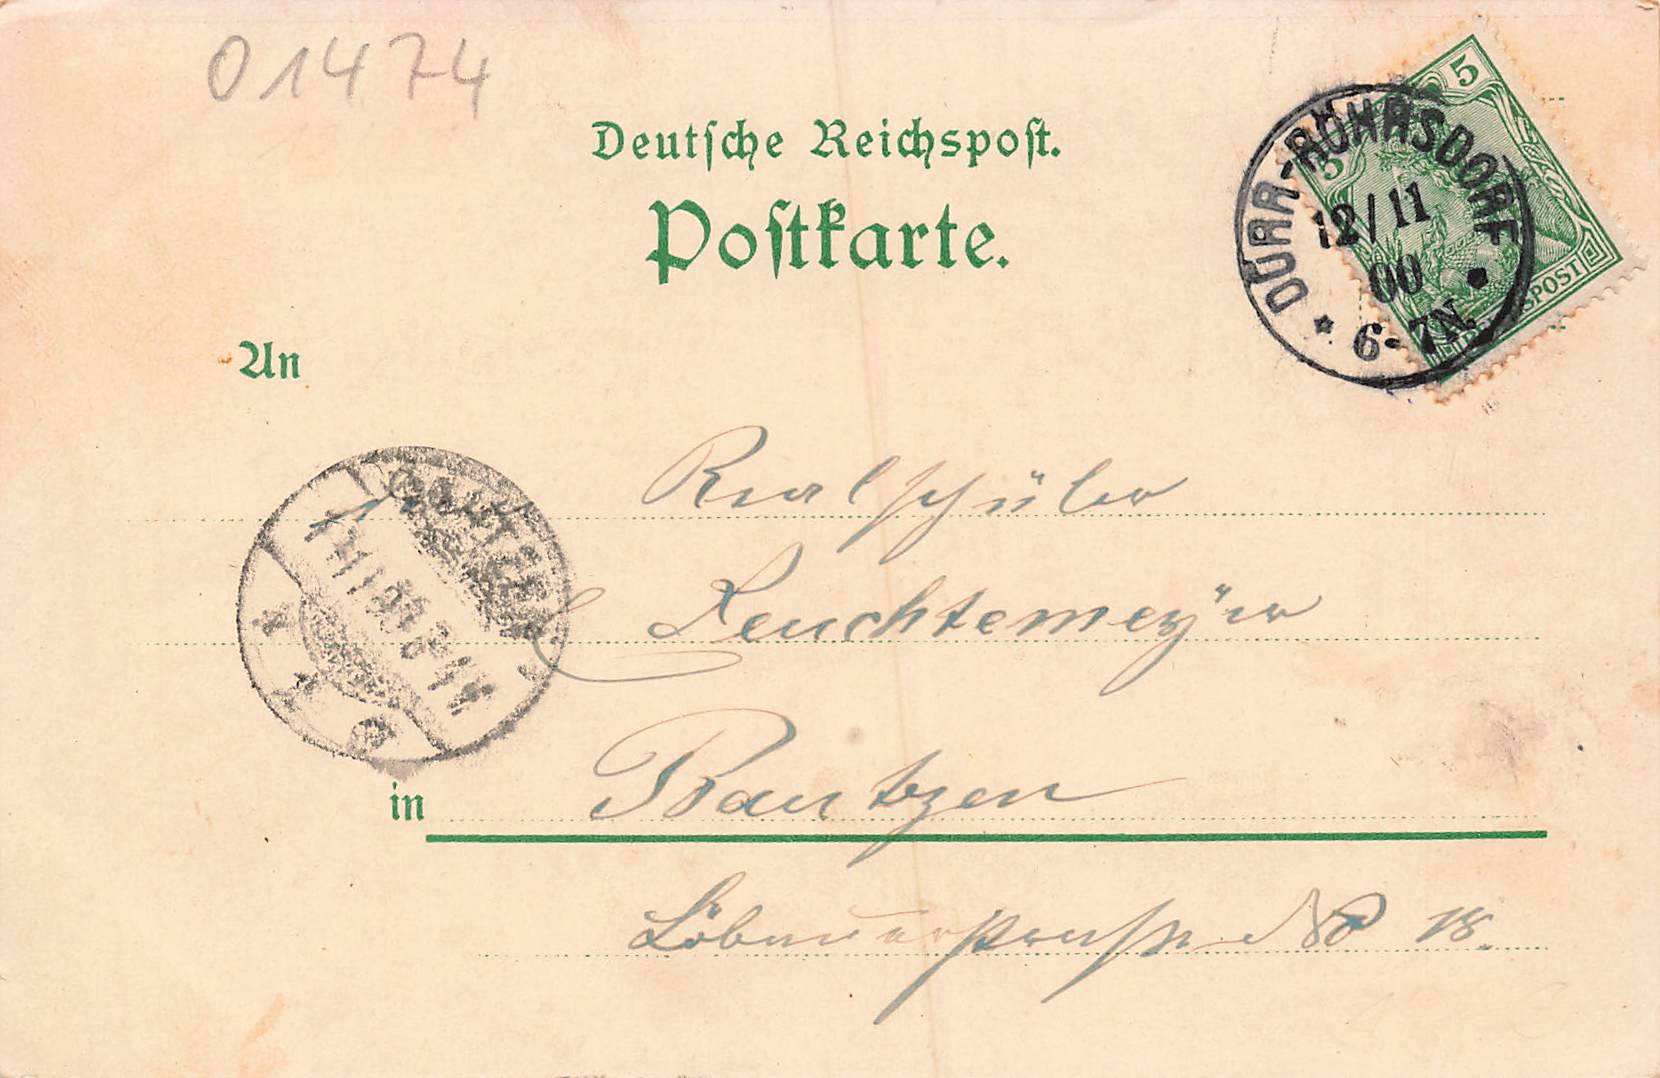 01474
Deutsche Reichspost.
Postkarte.
5
5
DÜRR-RÖHRSDORF
12/11
00
6-7N.
SPOST
An
BAUTZEN
Realschüler
Leuchtemeyer
in Bautzen
Löbauerstraße No 18.